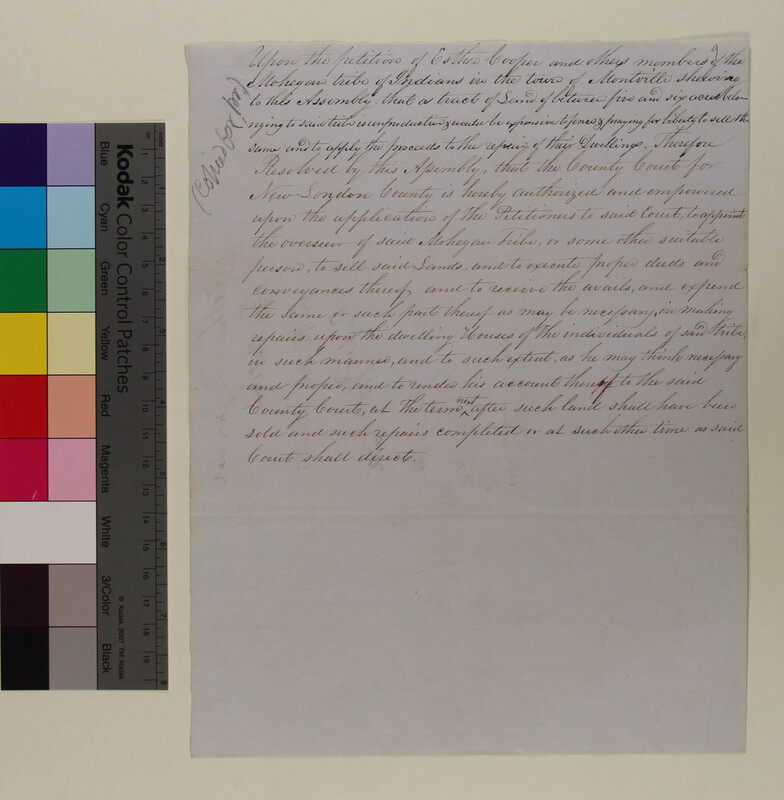 Upon the petition of Esther Cooper and others members of the
Mohegan tribe of Indians in the town of Montville shewing
to this Assembly that a tract of Land of between five and six acres belo-
nging to said tribe is unproductive & would be expensive to fence & praying for liberty to sell the
same and to apply the proceeds to the repair of their Dwellings, Therefore
Resolved by this Assembly, that the County Court for
New London County is hereby authorized and empowered
upon the application of the Petitioners to said Court, to appoint
the overseer of said Mohegan Tribe, or some other suitable
person, to sell said Lands, and to execute proper deeds and
conveyances thereof, and to receive the avails, and expend
the same or such part thereof as may be necessary, in making
repairs upon the dwelling Houses of the individuals of said tribe,
in such manner, and to such extent, as he may think necessary
and proper, and to render his account thereof to the said
County Court, at the term next after such land shall have been
sold and such repairs completed or at such other time as said
Court shall direct.
(Copied
Kodak Color Control Patches
Blue
Cyan
Green
Yellow
Red
Magenta
White
3/Color
Black
© Kodak, 2007 TM: Kodak
1
2
3
4
5
6
7
8
9
10
11
12
13
14
15
16
17
18
19
1
2
3
4
5
6
7
8